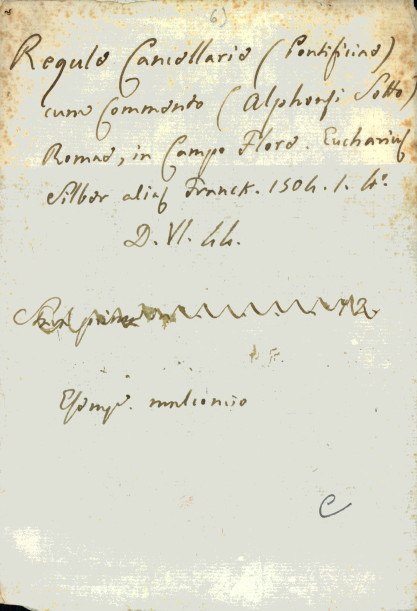 6)
Regule Cancellarie (Pontificiae)
cum Commento (Alphonsi Sotto)
Romae, in Campo Flore. Eucharius
Silber alias Franck. 1504. 1. 4°.
D. VI. 44.
Esemp. malconcio
C